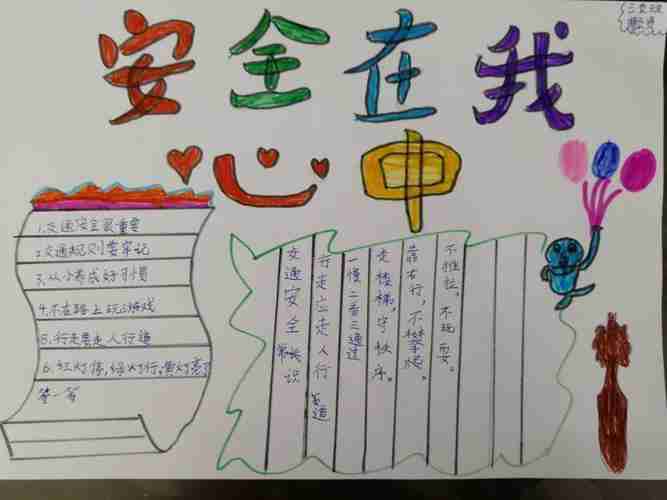 安全在我
心中
三
班
1.交通安全最重要
2.交通规则要牢记
3.从小养成好习惯
4.不在路上玩游戏
5.行走要走人行道
6.红灯停,绿灯行,黄灯亮了
等一等
交通安全常识
行走应走人行道
一慢二看三通过
走楼梯,守秩序。
靠右行,不攀爬。
不推拉,不玩耍。